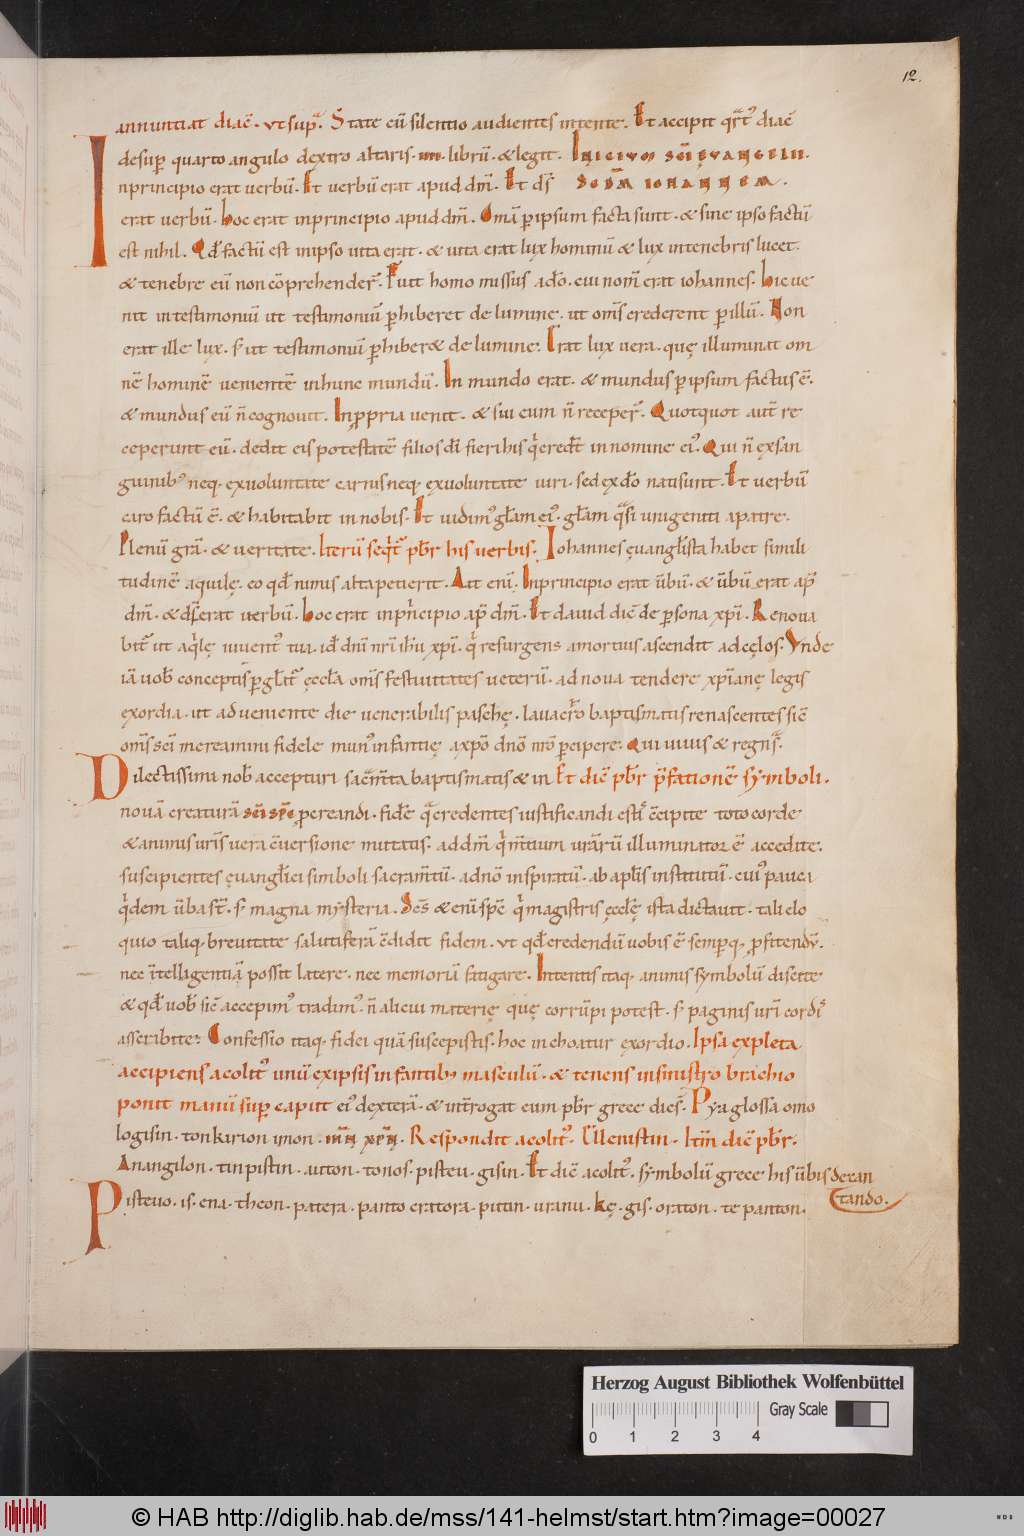 12.
annuntiat diac̄. ut sup̄. State cū silentio audientes intente. Et accipit qrt' diac̄
desup quarto angulo dextro altaris. IIII. librū. & legit. Iniciū sc̄i evangelii.
nprincipio erat verbū. Et verbū erat apud dm̄. Et ds̄ secd̄m iohannem.
erat verbū. hoc erat inprincipio apud dm̄. Om̄a p ipsum facta sunt. & sine ipso factū
est nihil. Qd̄ factū est inipso uita erat. & uita erat lux hominū & lux intenebris lucet.
& tenebre eū non cōprehender̄. Fuit homo missus a dō. cui nom̄ erat iohannes. hic ue
nit intestimoniū ut testimoniū phiberet de lumine. ut om̄s crederent p illū. Non
erat ille lux. s; ut testimoniū phiber& de lumine. Erat lux vera. quę illuminat om
nē hominē venientē inhunc mundū. In mundo erat. & mundus p ipsum factus ē.
& mundus eū n̄ cognouit. In ppria uenit. & sui eum n̄ receper̄. Quotquot aut̄ re
ceperunt eū. dedit eis potestatē filios dī fieri his q̄ credt̄ in nomine ei'. Qui n̄ ex san
guinib' neq. ex uoluntate carnis neq. ex uoluntate uiri. sed ex dō nati sunt. Et verbū
caro factū ē. & habitabit in nobis. Et uidim' glam̄ ei'. glam̄ q̄si unigeniti apatre.
Plenū grā. & veritate. Iterū seqt̄ pbr̄ his verbis. Iohannes ęvanglista habet simili
tudinē aquilę. eo qd̄ nimis alta petierit. Ait enī. Inprincipio erat ūbū. & ūbū erat ap̄
dm̄. & ds̄ erat verbū. hoc erat inp̄ncipio ap̄ dm̄. Et dauid dic̄ de psona xp̄i. Renoua
bit' ut aq̄lę iuuent' tua. id̄ dnī nrī ihū xp̄i. q̄ resurgens amortuis ascendit ad cęlos. Unde
iā uob̄ conceptis glt̄ ęccla om̄s festiuitates veterū. ad noua tendere xp̄ianę legis
exordia. ut adueniente die uenerabilis paschę. lauacr̄o baptismatis renascentes sic̄
om̄s sc̄i mereamini fidele mun' infantię axp̄o dn̄o nr̄o pcipere. Qui uiuis & regn̄.
Dilectissimi nob̄ accepturi sac̄m̄ta baptismatis & in Et dic̄ pbr̄ p̄fationē symboli.
nouā creaturā sc̄i sp̄c pcreandi. fidē q̄ credentes iustificandi estī c̄cipite toto corde
& animis urīs uera c̄uersione mutatis. ad dm̄ q̄ m̄tium urārū illuminator ē accedite.
suscipientes ęuanglici simboli sacram̄tū. adn̄o inspiratū. ab aplīs institutū. cui' pauca
q̄dem ūba st̄. s; magna mysteria. Sc̄s & enī sp̄c q̄ magistris ęcclę ista dictauit. tali elo
quio taliq. breuitate salutiferā c̄didit fidem. ut qd̄ credendū uobis ē semp q. pfitendū.
nec ītelligentiā possit latere. nec memoriā fatigare. Intentis itaq. animis symbolū discite
& qd̄ uob̄ sic̄ accepim' tradim'. n̄ alicui materię quę corrūpi potest. s; paginis urī cordis
asscribite. Confessio itaq. fidei quā suscepistis. hoc inchoatur ęxordio. Ipsa expleta
accipiens acolit' unū exipsis infantib' masculū. & tenens insinistro brachio
ponit manū sup caput ei' dexterā. & int̄rogat eum pbr̄ grece dics̄. Pya glossa omo
logisin. ton kirion ymon. ihn xpn. Respondit acolit'. Ellenistin. Itm̄ dic̄ pbr̄.
Anangilon. tin pistin. auton. tonos. pisteu. gisin. Et dic̄ acolit'. symbolū grece his ūbis decan
tando.
Pisteuo. is. ena. theon. patera. panto cratora. piitin. uranu. kę. gis. oraton. te panton.
Herzog August Bibliothek Wolfenbüttel
Gray Scale
0 1 2 3 4
© HAB http://diglib.hab.de/mss/141-helmst/start.htm?image=00027